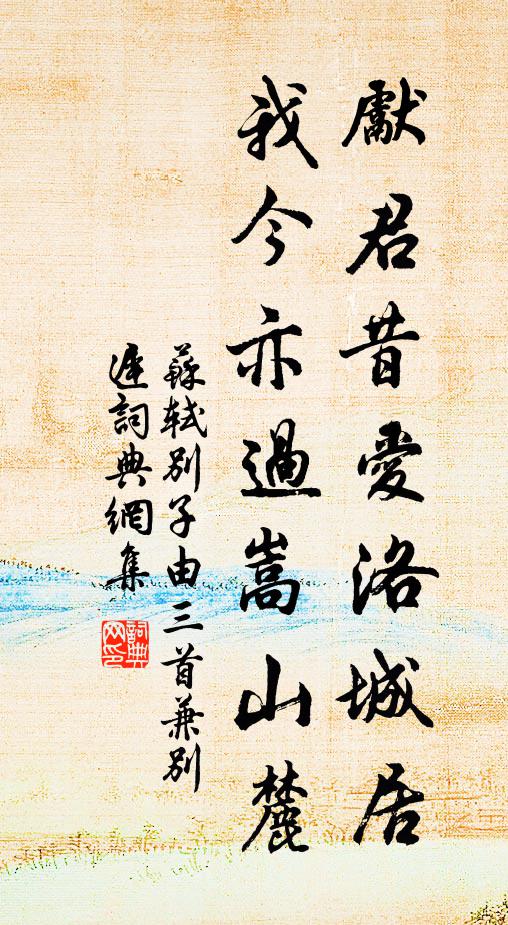 獻君昔愛洛城居
我今亦過嵩山麓
蘇軾別子由三首兼別
遲詞典網集
詞典
网印